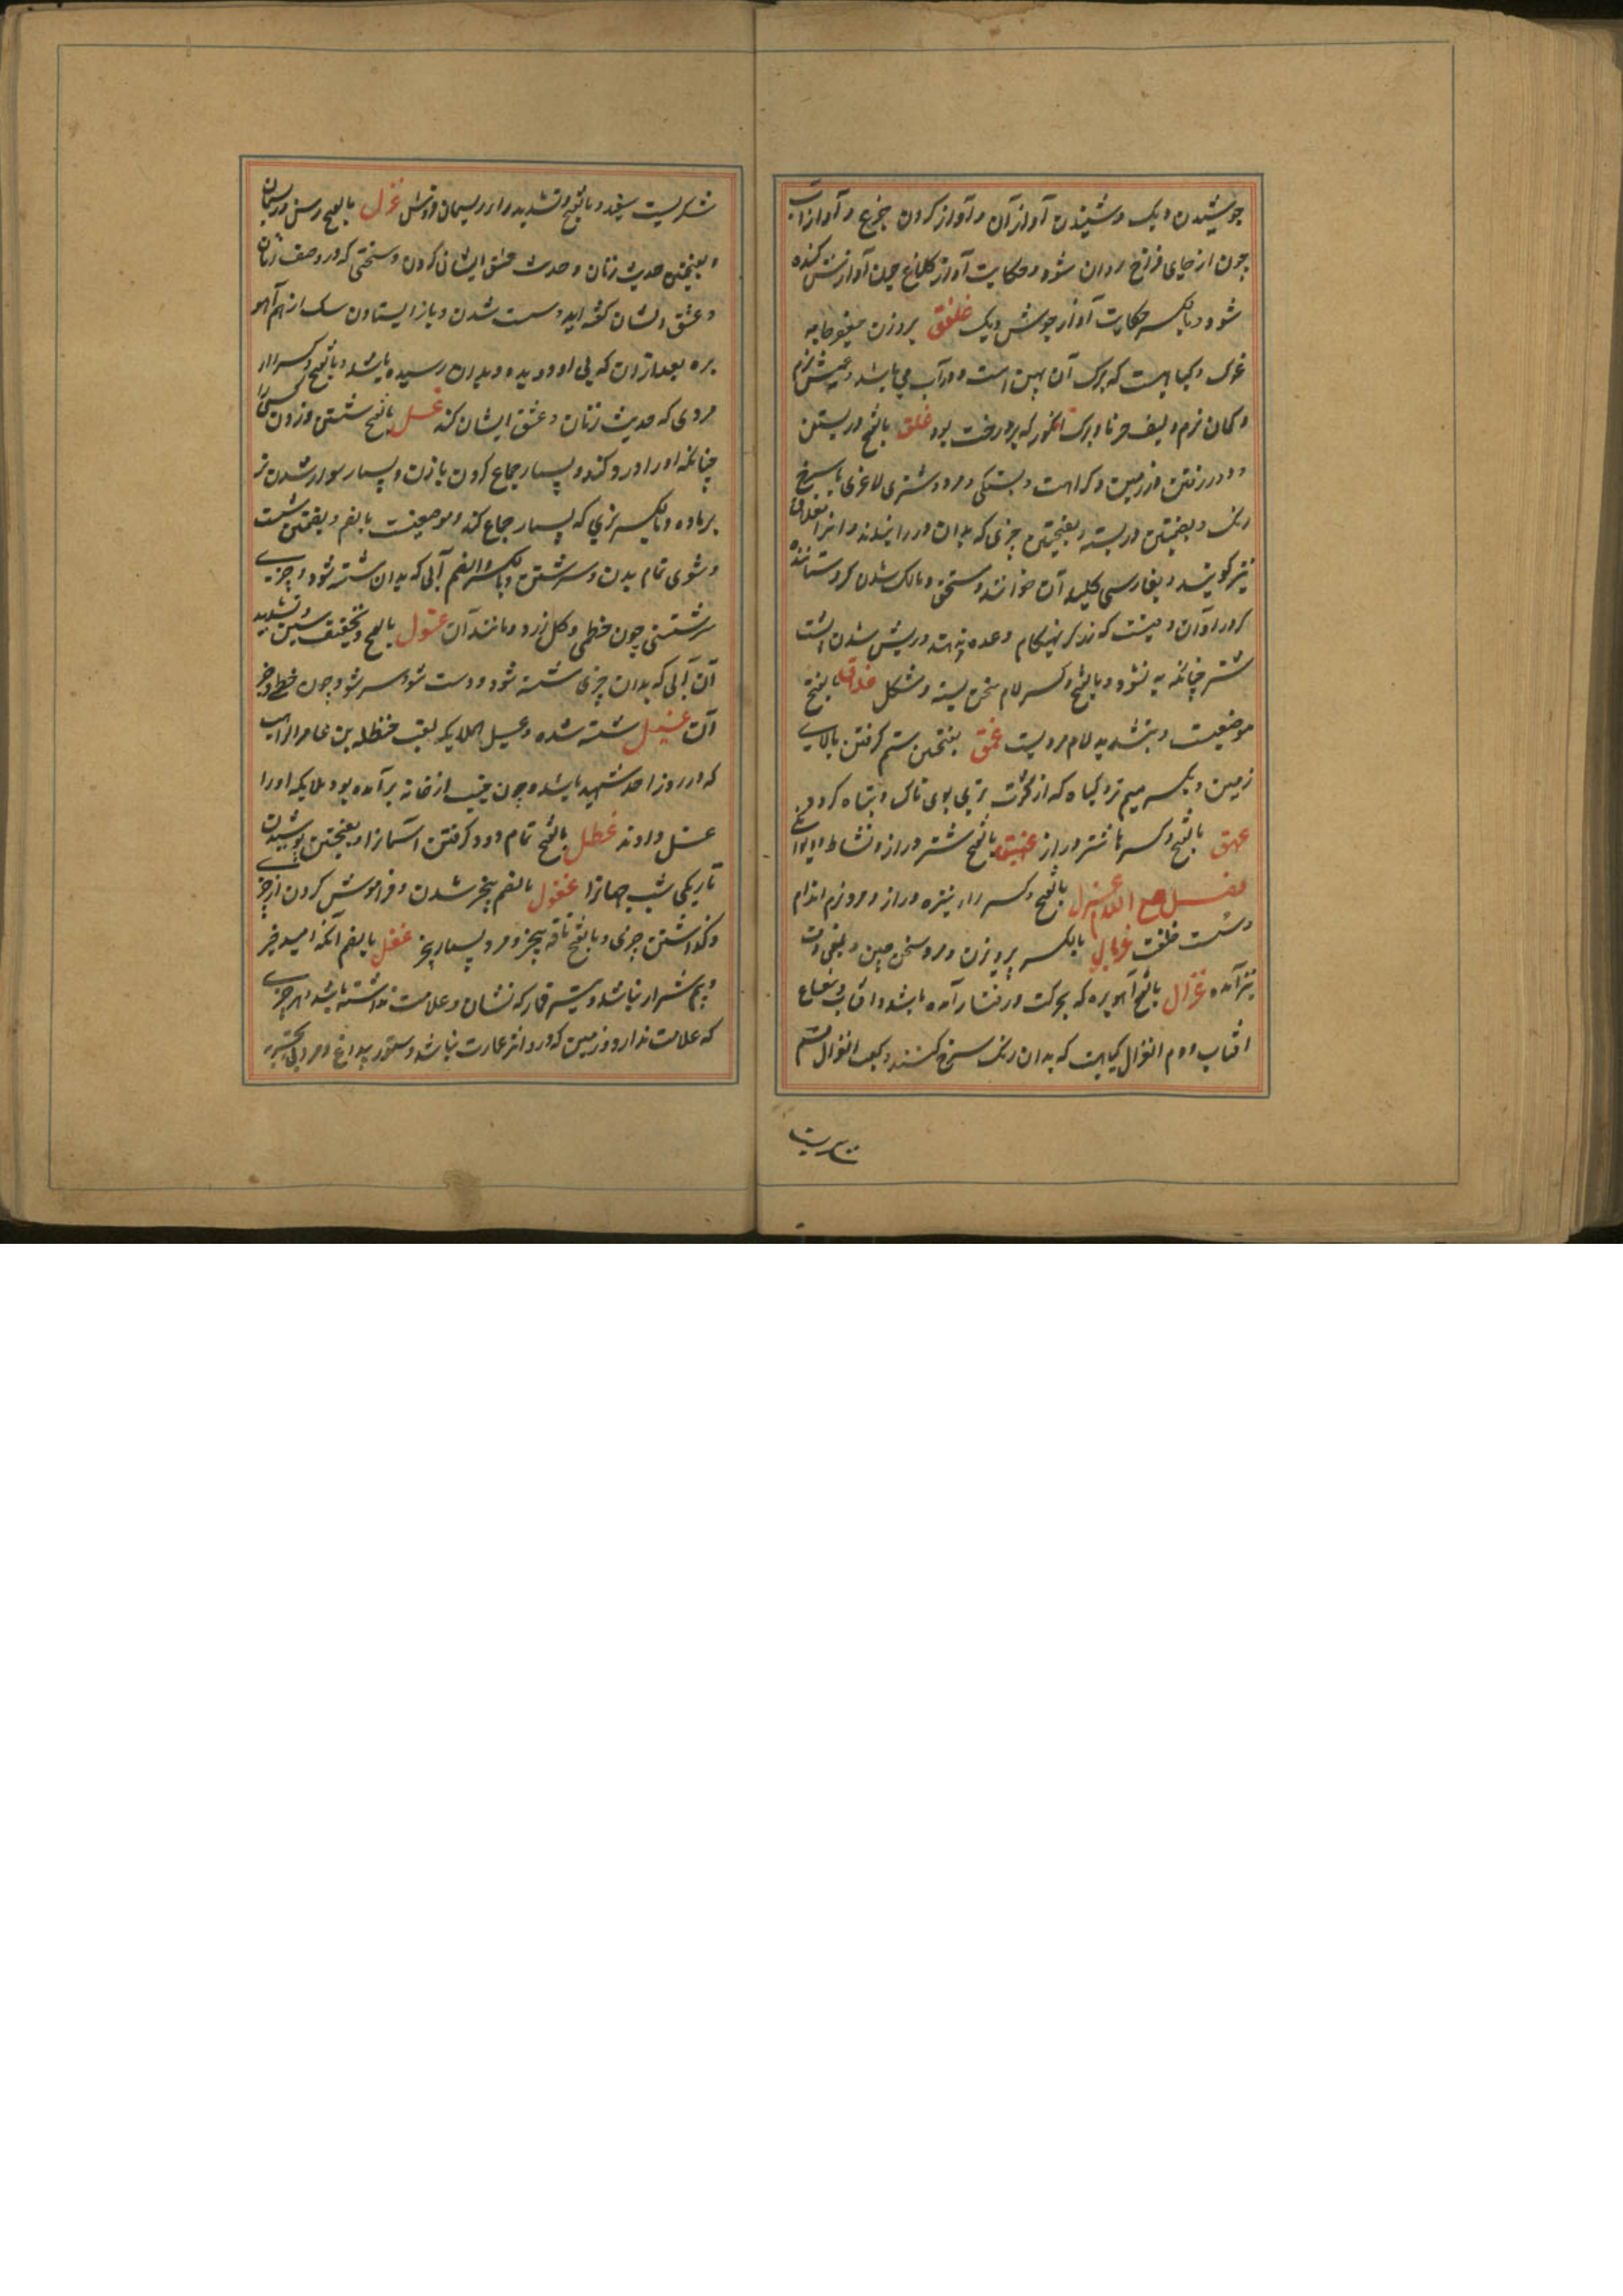 جوشیدن دیک و شنیدن آواز آن و آواز کردن چرغ و آواز آب
چون از جای فراخ روان شود و حکایت آواز کلاغ چون آوازش کنده
شود و بالکسر حکایت آواز جوش دیک غلفق بروزن جعفر جامه
غوک و گیاهیست که برک آن پهن است و در آب می باشد و عیش نرم
و کمان نرم و لیف خرما و برک انکور که بر درخت بود غلق بالفتح در بستن
و در رفتن در زمین و کراهت و بستگی و مرد و شتری لاغری یا سرخ
رنک و بضمتین در بسته و بفتحتین چیزی که بدان در را بندند و انرا مغلاق
نیز گویند و بفارسی کلید آن خوانند و مستحق و مالک شدن گرو ستاننده
گرو را و آن وقتیست که زد گر بهنگام وعده ندهند و ریش شدن پشت
شتر چنانکه به نشود و بالفتح و کسر لام سخن بسته و مشکل غلاق بالفتح
موضعیست و بتشدید لام مردیست غمق بفتحتین ستم گرفتن بالای
زمین و بکسر میم تر و گیاه که از کثرت تری بوی ناک و تباه گردد
عهق بالفتح و کسر ها شتر دراز غیهق بالفتح شتر دراز و نشاط و
فصل مع اللام غزل بالفتح و کسر راء نیزه دراز و مرد نرم اندام
و سست خلقت غربال بالکسر پرویزن و مرد سخن چین و بمعنی دف
نیز آمده غزال بالفتح آهوبره که بحرکت و رفتار آمده باشد و آفتاب و شعاع
افتاب و دم الغزال گیاهیست که بدان رنک سرخ کنند و کعب الغزال قسم
شکریست
شکریست سفید و بالفتح و تشدید زاء ریسمان فروش غزل بالفتح رسن و ریسمان
و بفتحتین حدیث زنان و حدیث عشق ایشان کردن و سخنی که در وصف زنان
و عشق ایشان گفته آید و سست شدن و باز ایستادن سک از بهم آهو
بره بعد از آن که پی او دویده و بدان رسیده باشد و بالفتح و کسر زاء
مردی که حدیث زنان و عشق ایشان کند غسل بالفتح شستن و زدن کسی را
چنانکه او را درد کند و بسیار جماع کردن با زن و بسیار سوار شدن نر
بر ماده و بالکسر نری که بسیار جماع کند و موضعیست بالضم و بضمتین شست
و شوی تمام بدن و سرشستن و بالکسر و الضم آبی که بدان شسته شود و چیزی
سرشستنی چون خطمی و گل زرد و مانند آن غسول بالفتح و تخفیف سین و تشدید
آن آبی که بدان چیزی شسته شود و دست شو و سر شو چون خطمی و جز
آن غسیل شسته شده و غسیل الملایکه لقب حنظله بن عامر الراهب
که در روز احد شهید باشد و چون جنب از خانه برآمده بود ملایکه او را
غسل دادند غطل بالفتح تمام دود گرفتن آسمانرا و بفتحتین پوشیدن
تاریکی شب جهانرا غفول بالضم بیخبر شدن و فراموش کردن از چیزی
و گذاشتن چیزی و بالفتح ناقه بیخبر و مرد بسیار بیخبر غفل بالضم آنکه امید خیر
و بیم شر از او نباشد و تیر قمار که نشان و علامت نداشته باشد و هر چیزی
که علامت ندارد و زمین که در و اثر عمارت نباشد و ستور بیداغ و مرد بی تجربه